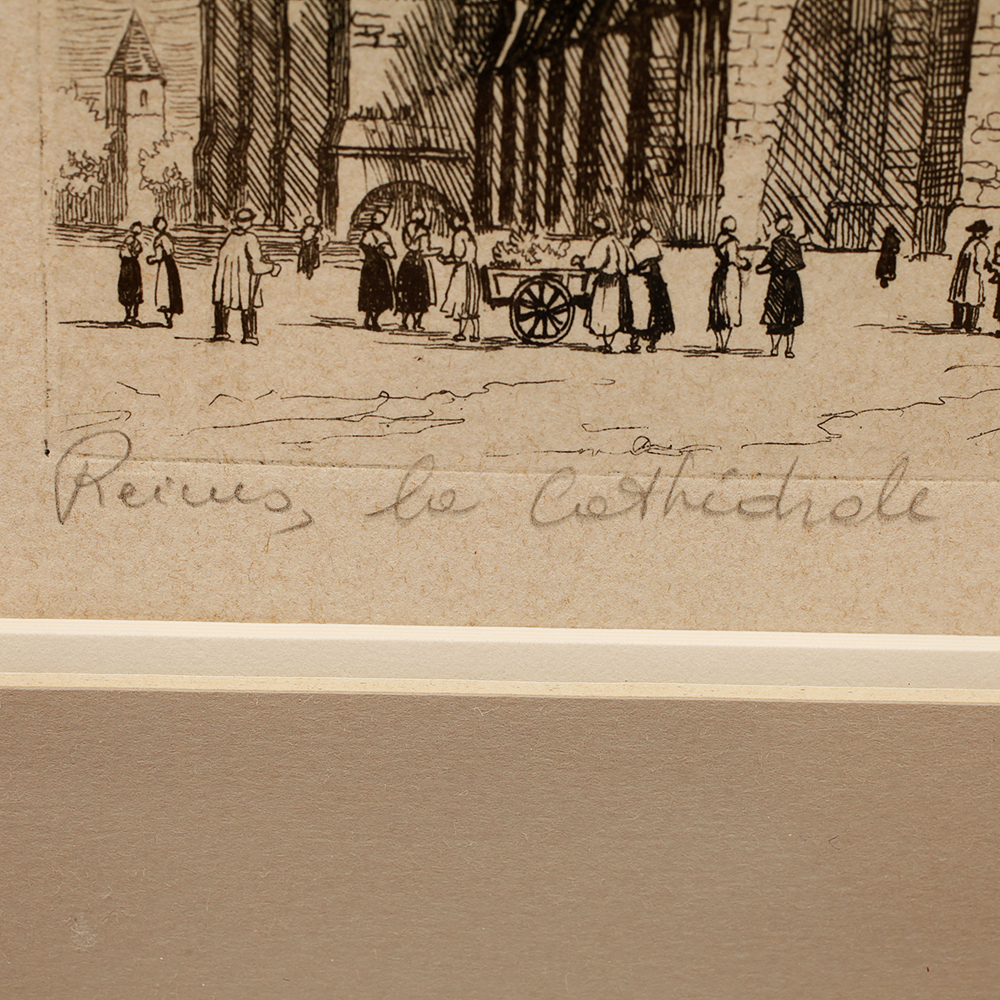 Reims, la Cathédrale